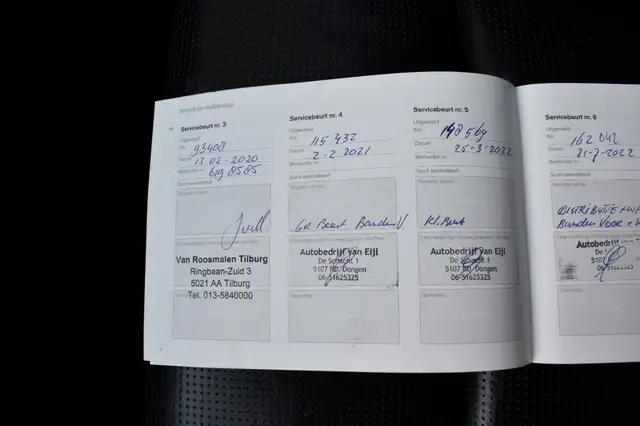 Servicebeurt nr. 3
Uitgevoerd
Km 93408
Datum 13 02 - 2020
Werkorder nr. 619 8585
Soort servicebeurt
Van Roosmalen Tilburg
Ringbaan-Zuid 3
5021 AA Tilburg
Tel. 013-5840000
Servicebeurt nr. 4
Uitgevoerd
Km 115 432
Datum 2-2 2021
Werkorder nr.
Soort servicebeurt
GR Beurt Banden V.
Autobedrijf van Eijl
De Schacht 1
5107 RD Dongen
06-51625325
Servicebeurt nr. 5
Uitgevoerd
Km
Datum 25-3-2022
Werkorder nr.
Soort servicebeurt
Kl. Beurt
Autobedrijf van Eijl
De Schacht 1
5107 RD Dongen
06-51625325
Servicebeurt nr. 6
Uitgevoerd
Km 162 042
Datum 21-7-2022
Werkorder nr.
Soort servicebeurt
DISTRIBUTIE
Banden Voor
Autobedrijf
De Schacht
5107
06-51625325